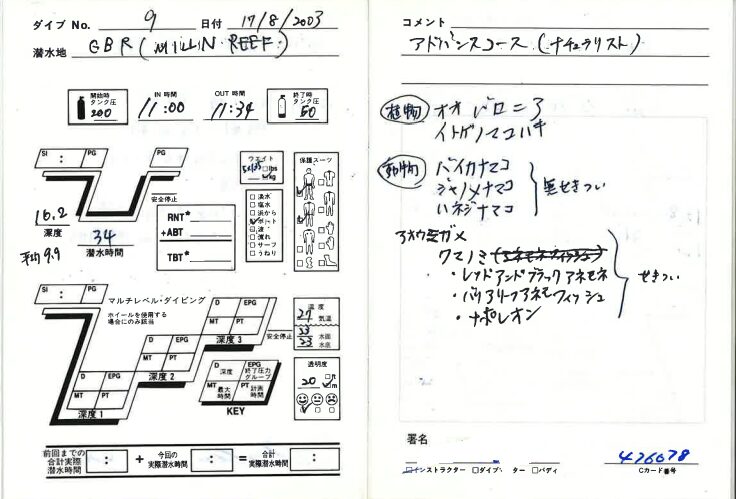 ダイブ No. 9 日付 17/8/2003
潜水地 GBR (MILLIN REEF)
開始時タンク圧 200
IN 時間 11:00
OUT 時間 11:34
終了時タンク圧 50
SI : PG
PG
16.2
深度
平均9.9
34
潜水時間
安全停止
RNT*
+ABT
TBT*
ウエイト
□lbs
kg
□淡水
□塩水
□浜から
ボート
□波
□濁れ
□サーフ
□うねり
保護スーツ
SI : PG
マルチレベル・ダイビング
ホイールを使用する
場合にのみ該当
D EPG
MT PT
深度 1
D EPG
MT PT
深度 2
D EPG
MT PT
深度 3
安全停止
温度
27 気温
23 水面
23 水底
D 深度
EPG 終了圧力グループ
MT 最大時間
PT 計測時間
KEY
透明度
20 □ft m
前回までの合計実際潜水時間 : + 今回の実際潜水時間 : = 合計実際潜水時間 :
コメント
アドバンスコース (ナチュラリスト)
植物 オオバロニア
イトゲノマコハキ
動物 バイカナマコ
ジャノメナマコ
ハネジナマコ
無せきつい
アオウミガメ
クマノミ (アネモネフィッシュ)
・レッドアンドブラックアネモネ
・バリアリーフアネモフィッシュ
・ナポレオン
せきつい
署名
□インストラクター □ダイブ ター □バディ
426078
Cカード番号